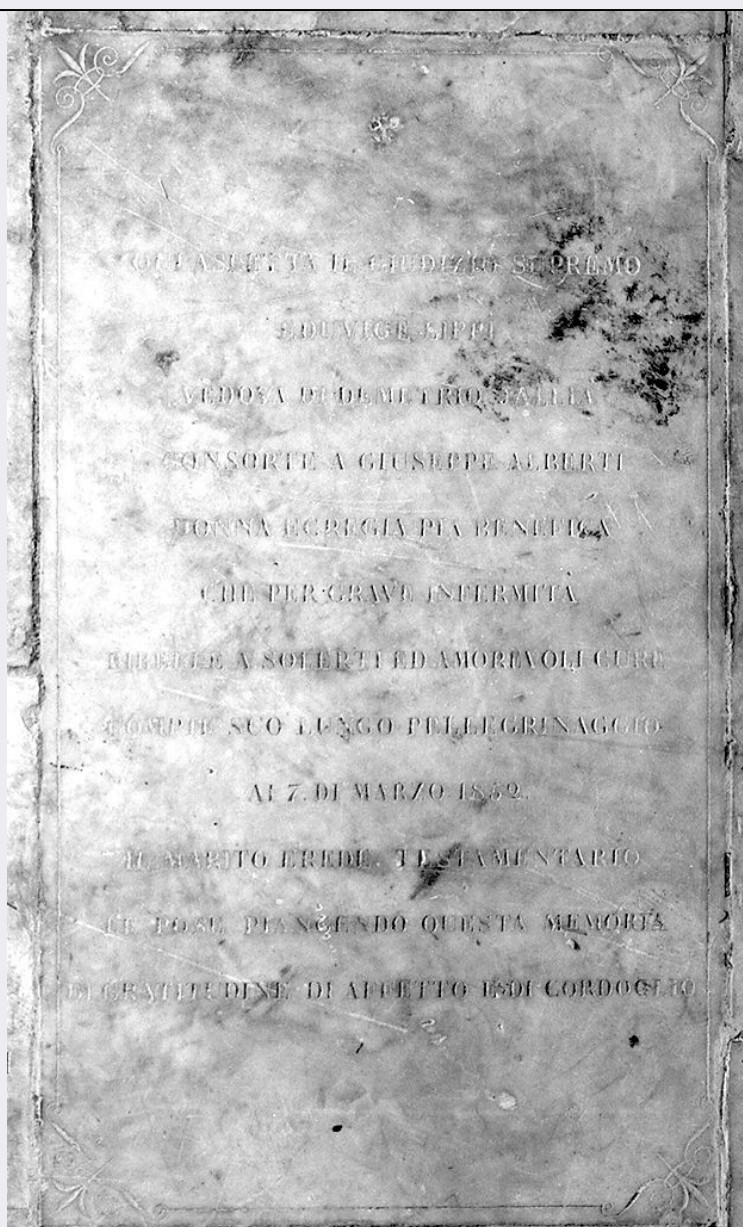 QUI ASPETTA IL GIUDIZIO SUPREMO
EDUVIGE LIPPI
VEDOVA DI DEMETRIO
CONSORTE A GIUSEPPE ALBERTI
DONNA EGREGIA PIA BENEFICA
CHE PER GRAVE INFERMITÀ
RIBELLE A SOLERTI ED AMOREVOLI CURE
COMPIE SUO LUNGO PELLEGRINAGGIO
AI 7. DI MARZO 1852.
IL MARITO EREDE TESTAMENTARIO
LE POSE PIANGENDO QUESTA MEMORIA
DI GRATITUDINE DI AFFETTO E DI CORDOGLIO